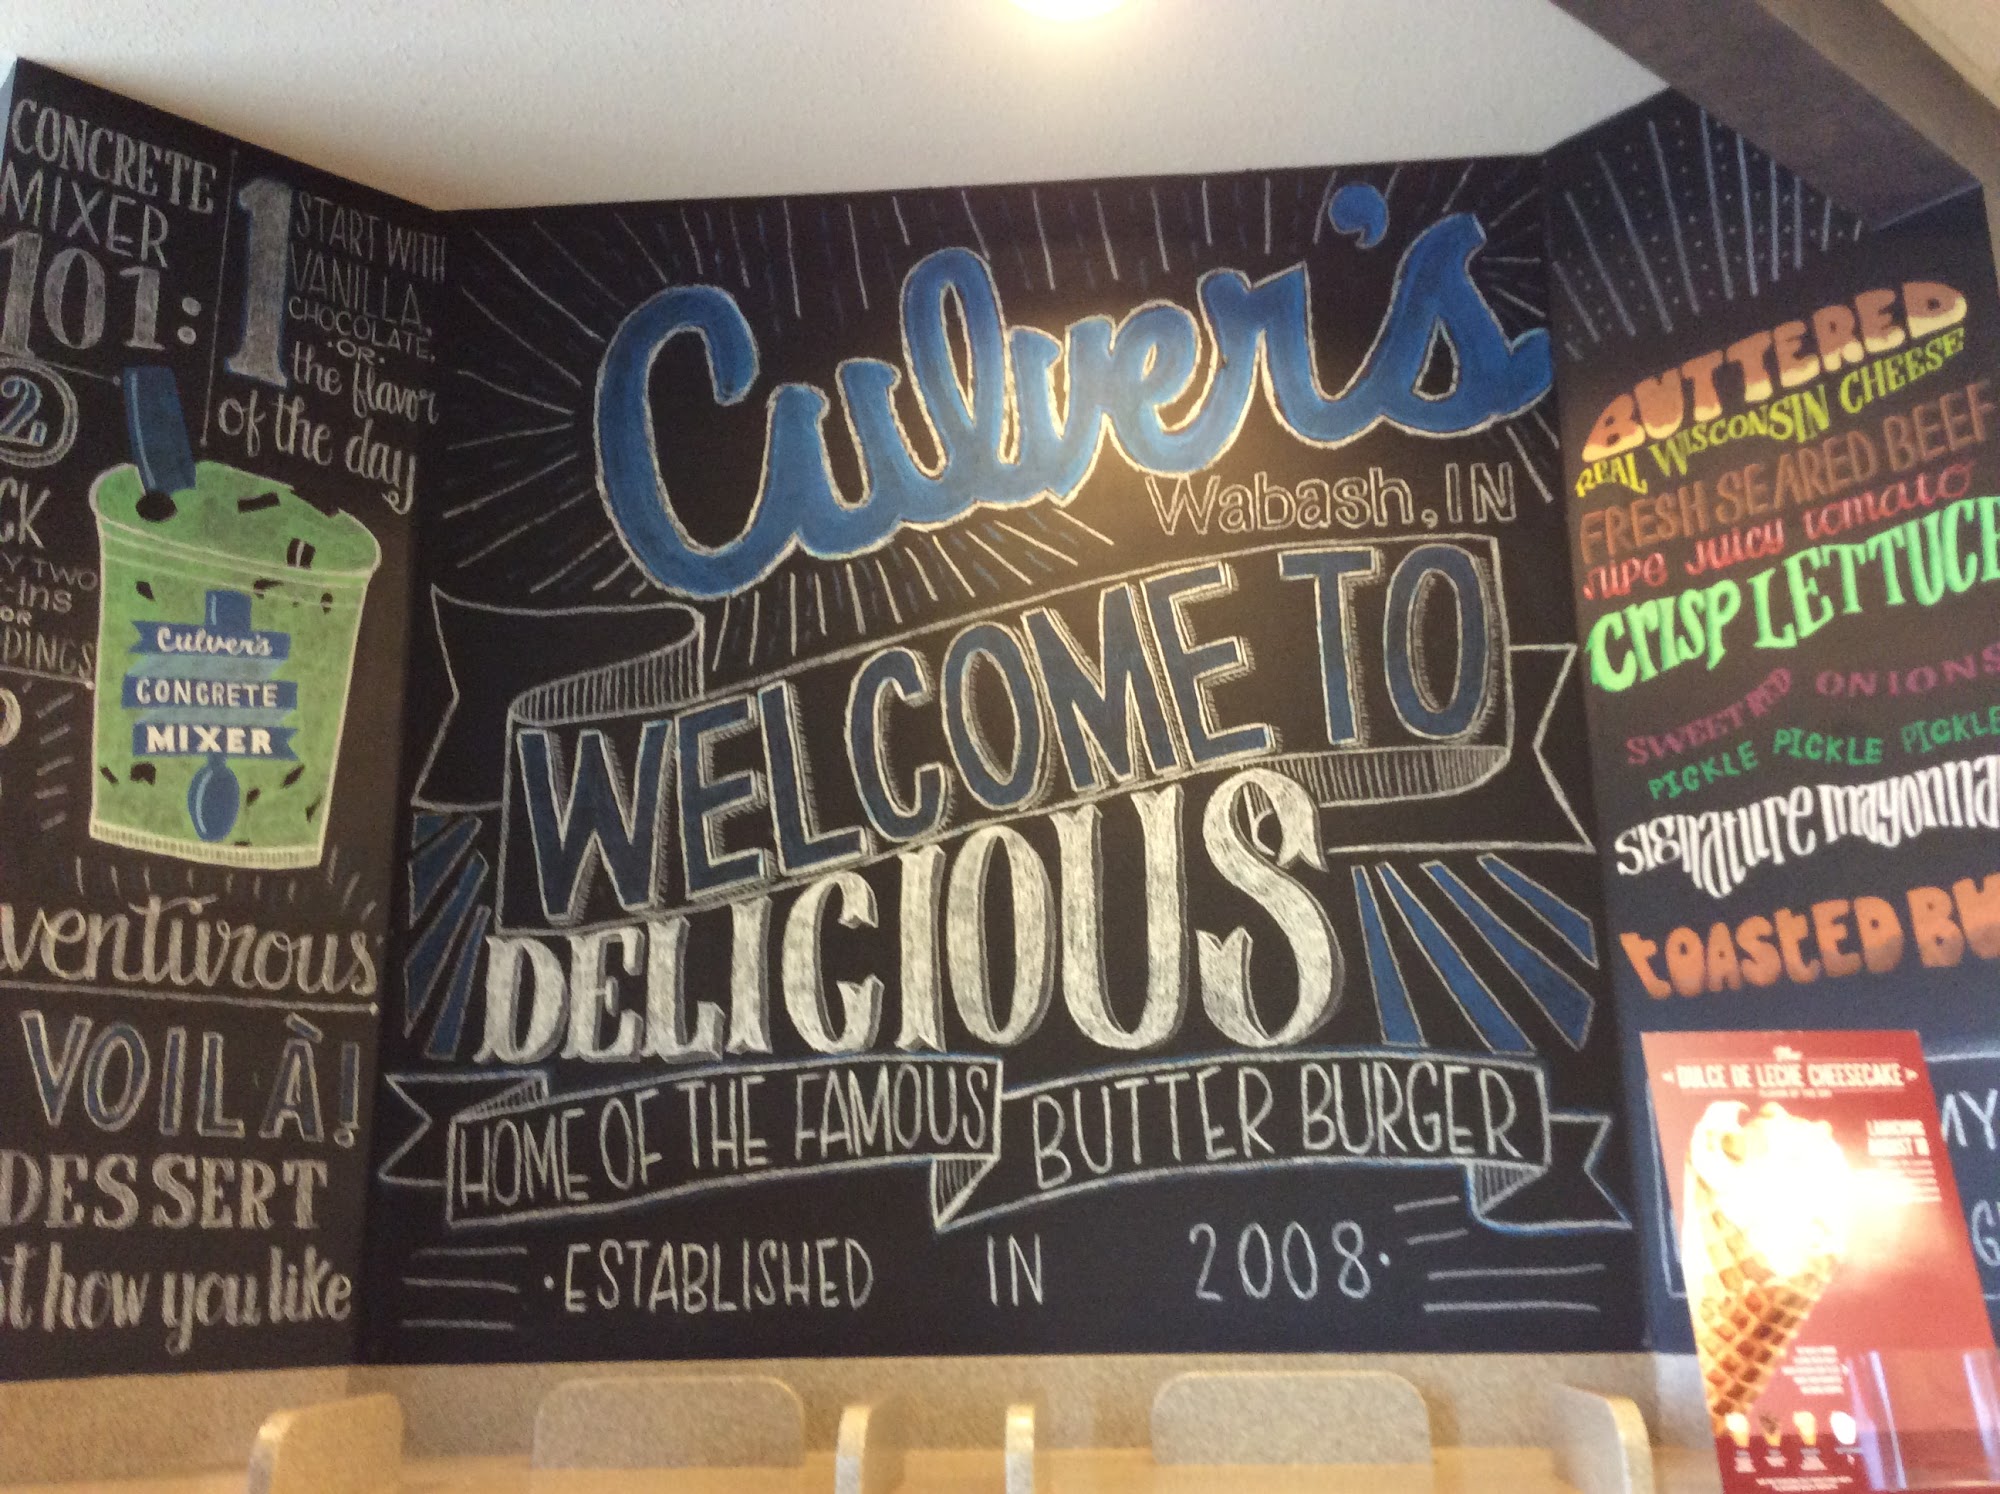 CONCRETE
MIXER
101:
1
START WITH
VANILLA,
CHOCOLATE,
·OR·
the flavor
of the day
2
TWO
OR
Culver's
CONCRETE
MIXER
VOILÀ!
DESSERT
how you like
Culver's
Wabash, IN
WELCOME TO
DELICIOUS
HOME OF THE FAMOUS BUTTER BURGER
·ESTABLISHED IN 2008·
BUTTERED
REAL WISCONSIN CHEESE
FRESH SEARED BEEF
ripe juicy tomato
CRISP LETTUCE
SWEET RED ONIONS
PICKLE PICKLE PICKLE
signature mayonna
toasted BU
The
DULCE DE LECHE CHEESECAKE
FLAVOR OF THE DAY
LAUNCHING
AUGUST 18
MY